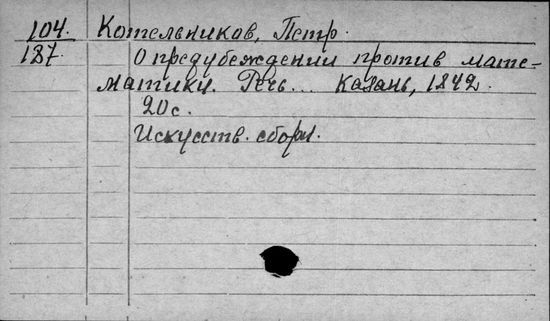 104. Котельников, Петр.
187. О предубеждении против мате-
матики. Речь... Казань, 1842.
20 с.
Искусств. сборн.